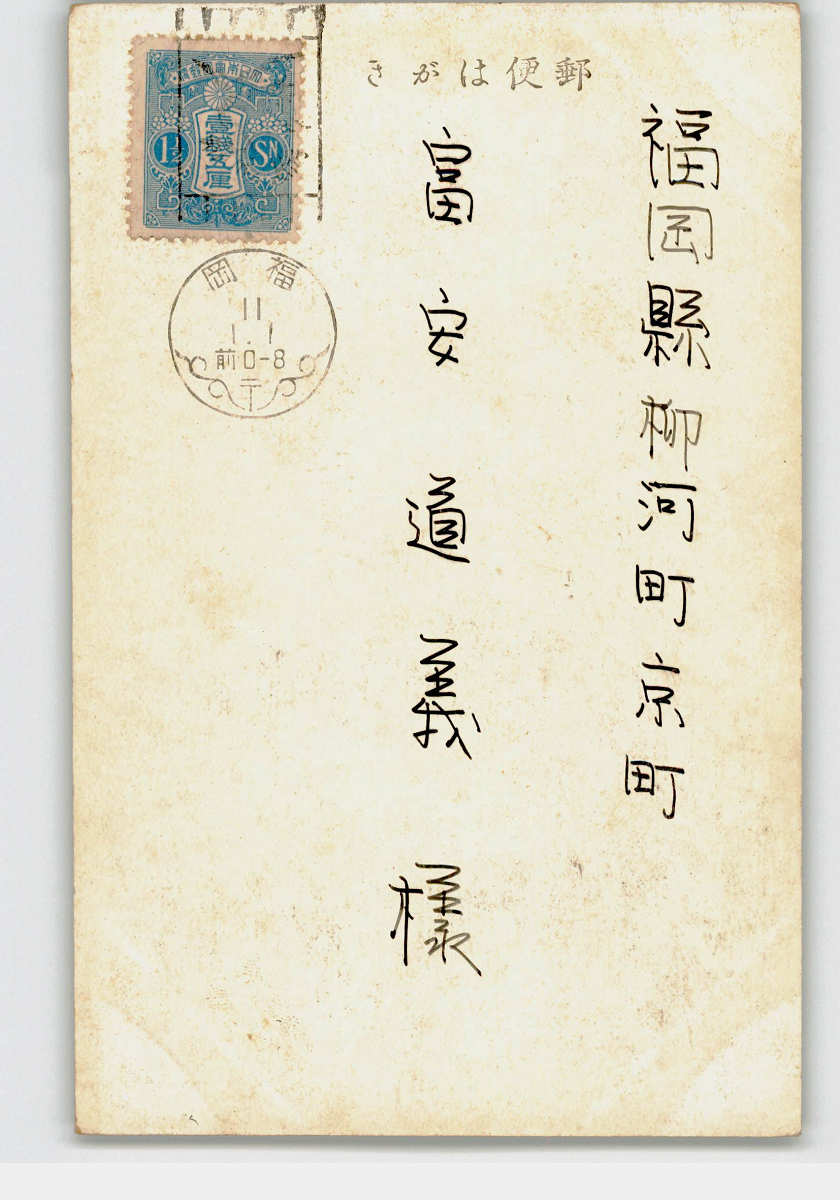 郵便はがき
福岡縣柳河町京町
富安道義様
大日本帝國郵便
壹錢五厘
1½ SN
福岡
11
1.1
前0-8